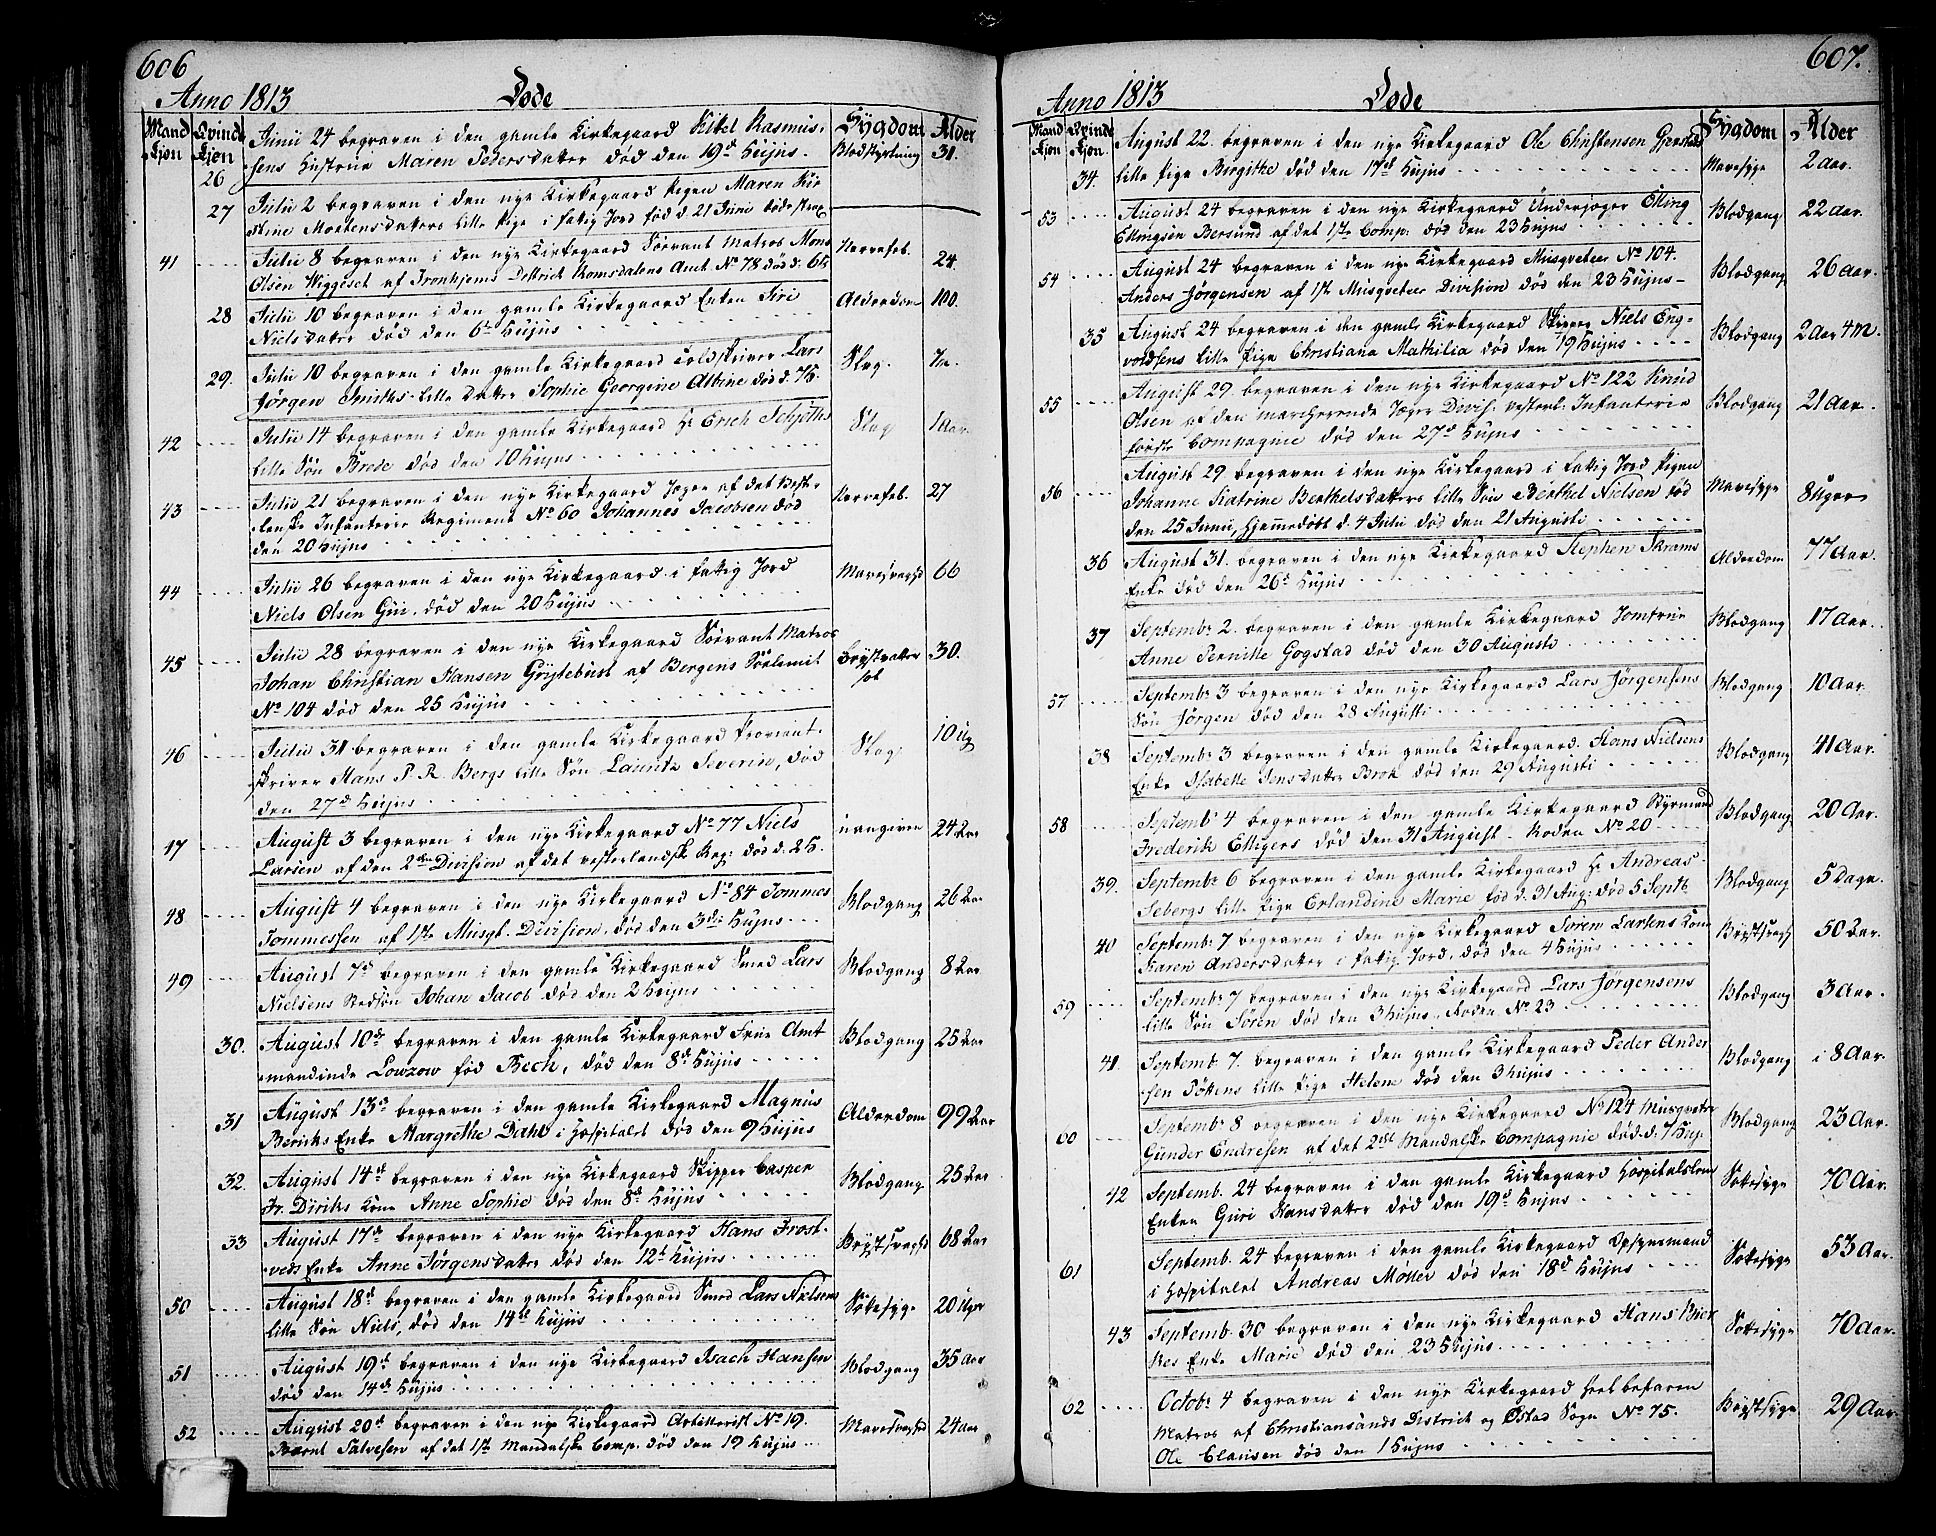 606
Anno 1813 Døde
Mand Kjøn Qvinde Kjøn Sygdom Alder
26 Junii 24 begraven i den gamle Kirkegaard Kikel Rasmus- Blodstyrtning 31.
sens Hustrue Maren Pedersdatter død den 19de Hujus.
27 Julii 2 begraven i den nye Kirkegaard Pigen Maren Kir
stine Mortensdatters lille Pige i fattig Jord fød d. 21 Juni døde strax
41 Julii 8 begraven i den nye Kirkegaard Sørvant Matros Mons Nervefeb. 24
Olsen Wiggeset af Tronhjems Destrict Romsdalens Amt No 78 død d. 6te
28 Julii 10 begraven i den gamle Kirkegaard Enken Siri Alderdom 100.
Nielsdatter død den 6te Hujus
29. Julii 10 begraven i den gamle Kirkegaard Toldskriver Lars Slag. 7 u.
Jørgen Smiths lille Datter Sophie Georgine Albine død d. 7 H.
42 Julii 14 begraven i den gamle Kirkegaard Hr Erich Schjøths Slag 1 Aar
lille Søn Brede død den 10 Hujus
43 Julii 21 begraven i den nye Kirkegaard Jæger af det Vester- Nervefeb. 27
lenske Infanterie Regiment No 60 Johannes Jacobsen død
den 20 Hujus
44 Julii 26 begraven i den nye Kirkegaard i fattig Jord Mavesvaghd 66
Niels Olsen Gui. død den 20 Hujus
45 Julii 28 begraven i den nye Kirkegaard Sørvant Matros Brystvatter 30.
Johan Christian Hansen Gryttebust af Bergens Sørlemit sot
No 104 død den 25 Hujus
46 Julii 31 begraven i den gamle Kirkegaard Proviant- Slag 10 Ug
skriver Hans P. R. Bergs lille Søn Lauritz Severin, død
den 27de Hujus
47 August 3 begraven i den nye Kirkegaard No 77 Niels unangiven 24 Aar
Larsen af den 2den Division af det vesterlandske Reg: død d. 2 H.
48 August 4 begraven i den nye Kirkegaard No 84 Tommes Blodgang 26 Aar
Tommessen af 1ste Musqt. Division, død den 3de Hujus
49 August 7de begraven i den gamle Kirkegaard Smed Lars Blodgang 8 Aar
Nielsens Stedsøn Johan Jacob død den 2 Hujus
30. August 10de begraven i den gamle Kirkegaard Frue Amt Blodgang 25 Aar
mandinde Lowzow fød Bech, død den 8de Hujus
31 August 13de begraven i den gamle Kirkegaard Magnus Alderdom 99 Aar
Beriks Enke Margrethe Dahl i Hospitalet død den 9 Hujus
32. August 14de begraven i den nye Kirkegaard Skipper Casper Blodgang 25 Aar
Fr. Diriks Kone Anne Sophie død den 8de Hujus
33 August 17de begraven i den nye Kirkegaard Hans Frost- Brystsvaghd 68 Aar
veds Enke Anne Jørgensdatter død den 12te Hujus
50 August 18de begraven i den gamle Kirkegaard Smed Lars Nielsens Sottesyge 20 Uger
lille Søn Niels, død den 14de Hujus
51 August 19de begraven i den nye Kirkegaard Isach Hansen Blodgang 35 Aar
død den 14de Hujus
52 August 20de begraven i den nye Kirkegaard Artillerist No 19. Mavesvaghd 24 Aar
Bernt Salvesen af det 1ste Mandalske Comp. død den 19 Hujus
607.
Anno 1813 Døde
Mand Kjøn Qvinde Kjøn Sygdom Alder
34. August 22. begraven i den nye Kirkegaard Ole Christensen Gjerstads Mavesyge 2 Aar.
lille Pige Birgithe død den 17de Hujus
53 August 24 begraven i den nye Kirkegaard Underjæger Elling Blodgang 22 Aar.
Ellingsen Bersund af det 1ste Comp: død den 23 Hujus
54 August 24 begraven i den nye Kirkegaard Musqveteer No 104. Blodgang 26 Aar.
Anders Jørgensen af 1ste Musqveteer Division død den 23 Hujus
35 August 24 begraven i den gamle Kirkegaard Skipper Niels Eng- Blodgang 2 Aar 4 M.
voldsens lille Pige Christiana Mathilia død den 19 Hujus
55 August 29 begraven i den nye Kirkegaard No 122 Knud Blodgang 21 Aar.
Olsen af den marcherende Jæger Divis. vesterl. Infanterie
første Compagnie død den 27de Hujus
56 August 29 begraven i den nye Kirkegaard i fattig Jord Pigen Mavesyge 8 Uger
Johanne Katrine Berthelsdatters lille Søn Berthel Nielsen fød
den 25 Junii, hjemmedøbt d. 4 Julii død den 21 Augusti
36 August 31. begraven i den nye Kirkegaard Stephen Skrams Alderdom 77 Aar.
Enke død den 26de Hujus
37 Septembr 2. begraven i den gamle Kirkegaard Jomfrue Blodgang 17 Aar.
Anne Pernille Gogstad død den 30 Augusti
57 Septembr 3 begraven i den nye Kirkegaard Lars Jørgensens Blodgang 10 Aar.
Søn Jørgen død den 28 Augusti
38 Septembr 3 begraven i den gamle Kirkegaard. Hans Nielsens Blodgang 41 Aar.
Enke Isabelle Jensdatter Brok død den 29 Augusti
58 Septembr 4 begraven i den gamle Kirkegaard Styrmand Blodgang 20 Aar.
Frederik Elligers død den 31 August - Roden No 20
39. Septembr 6 begraven i den gamle Kirkegaard Hr Andreas Blodgang 5 Dage.
Sebergs lille Pige Erlandine Marie fød d. 31 Aug: død 5 Septb.
40 Septembr 7 begraven i den gamle Kirkegaard Søren Larsens Kone Brystsvaghd 50 Aar.
Karen Andersdatter i fattig Jord, død den 4 Hujus
59 Septembr 7 begraven i den nye Kirkegaard Lars Jørgensens Blodgang 3 Aar.
lille Søn Søren død den 3 Hujus. Roden No 23
41. Septemb. 7. begraven i den gamle Kirkegaard Peder Ander Blodgang i 8 Aar.
sen Tøkens lille Pige Helene død den 3 Hujus
60 Septembr 8 begraven i den nye Kirkegaard No 124 Musqveteer Blodgang 23 Aar.
Gunder Endresen af det 2det Mandalske Compagnie død. d. 7 Huj.
42 Septemb. 24 begraven i den gamle Kirkegaard Hospitalslem Sottesyge 70 Aar.
Enken Guri Hansdatter død den 19de Hujus
61 Septemb. 24 begraven i den gamle Kirkegaard Opsynsmand Sottesyge 53 Aar.
i Hospitalet Andreas Møller død den 18de Hujus
43 Septemb. 30 begraven i den nye Kirkegaard Hans Bier Sottesyge 70 Aar.
kes Enke Marie død den 23 Hujus
62 Octobr 4 begraven i den nye Kirkegaard heelbefaren Brystsyge 29 Aar.
Matros af Christiansands District og Østad Sogn No 75.
Ole Clausen død den 1 Hujus